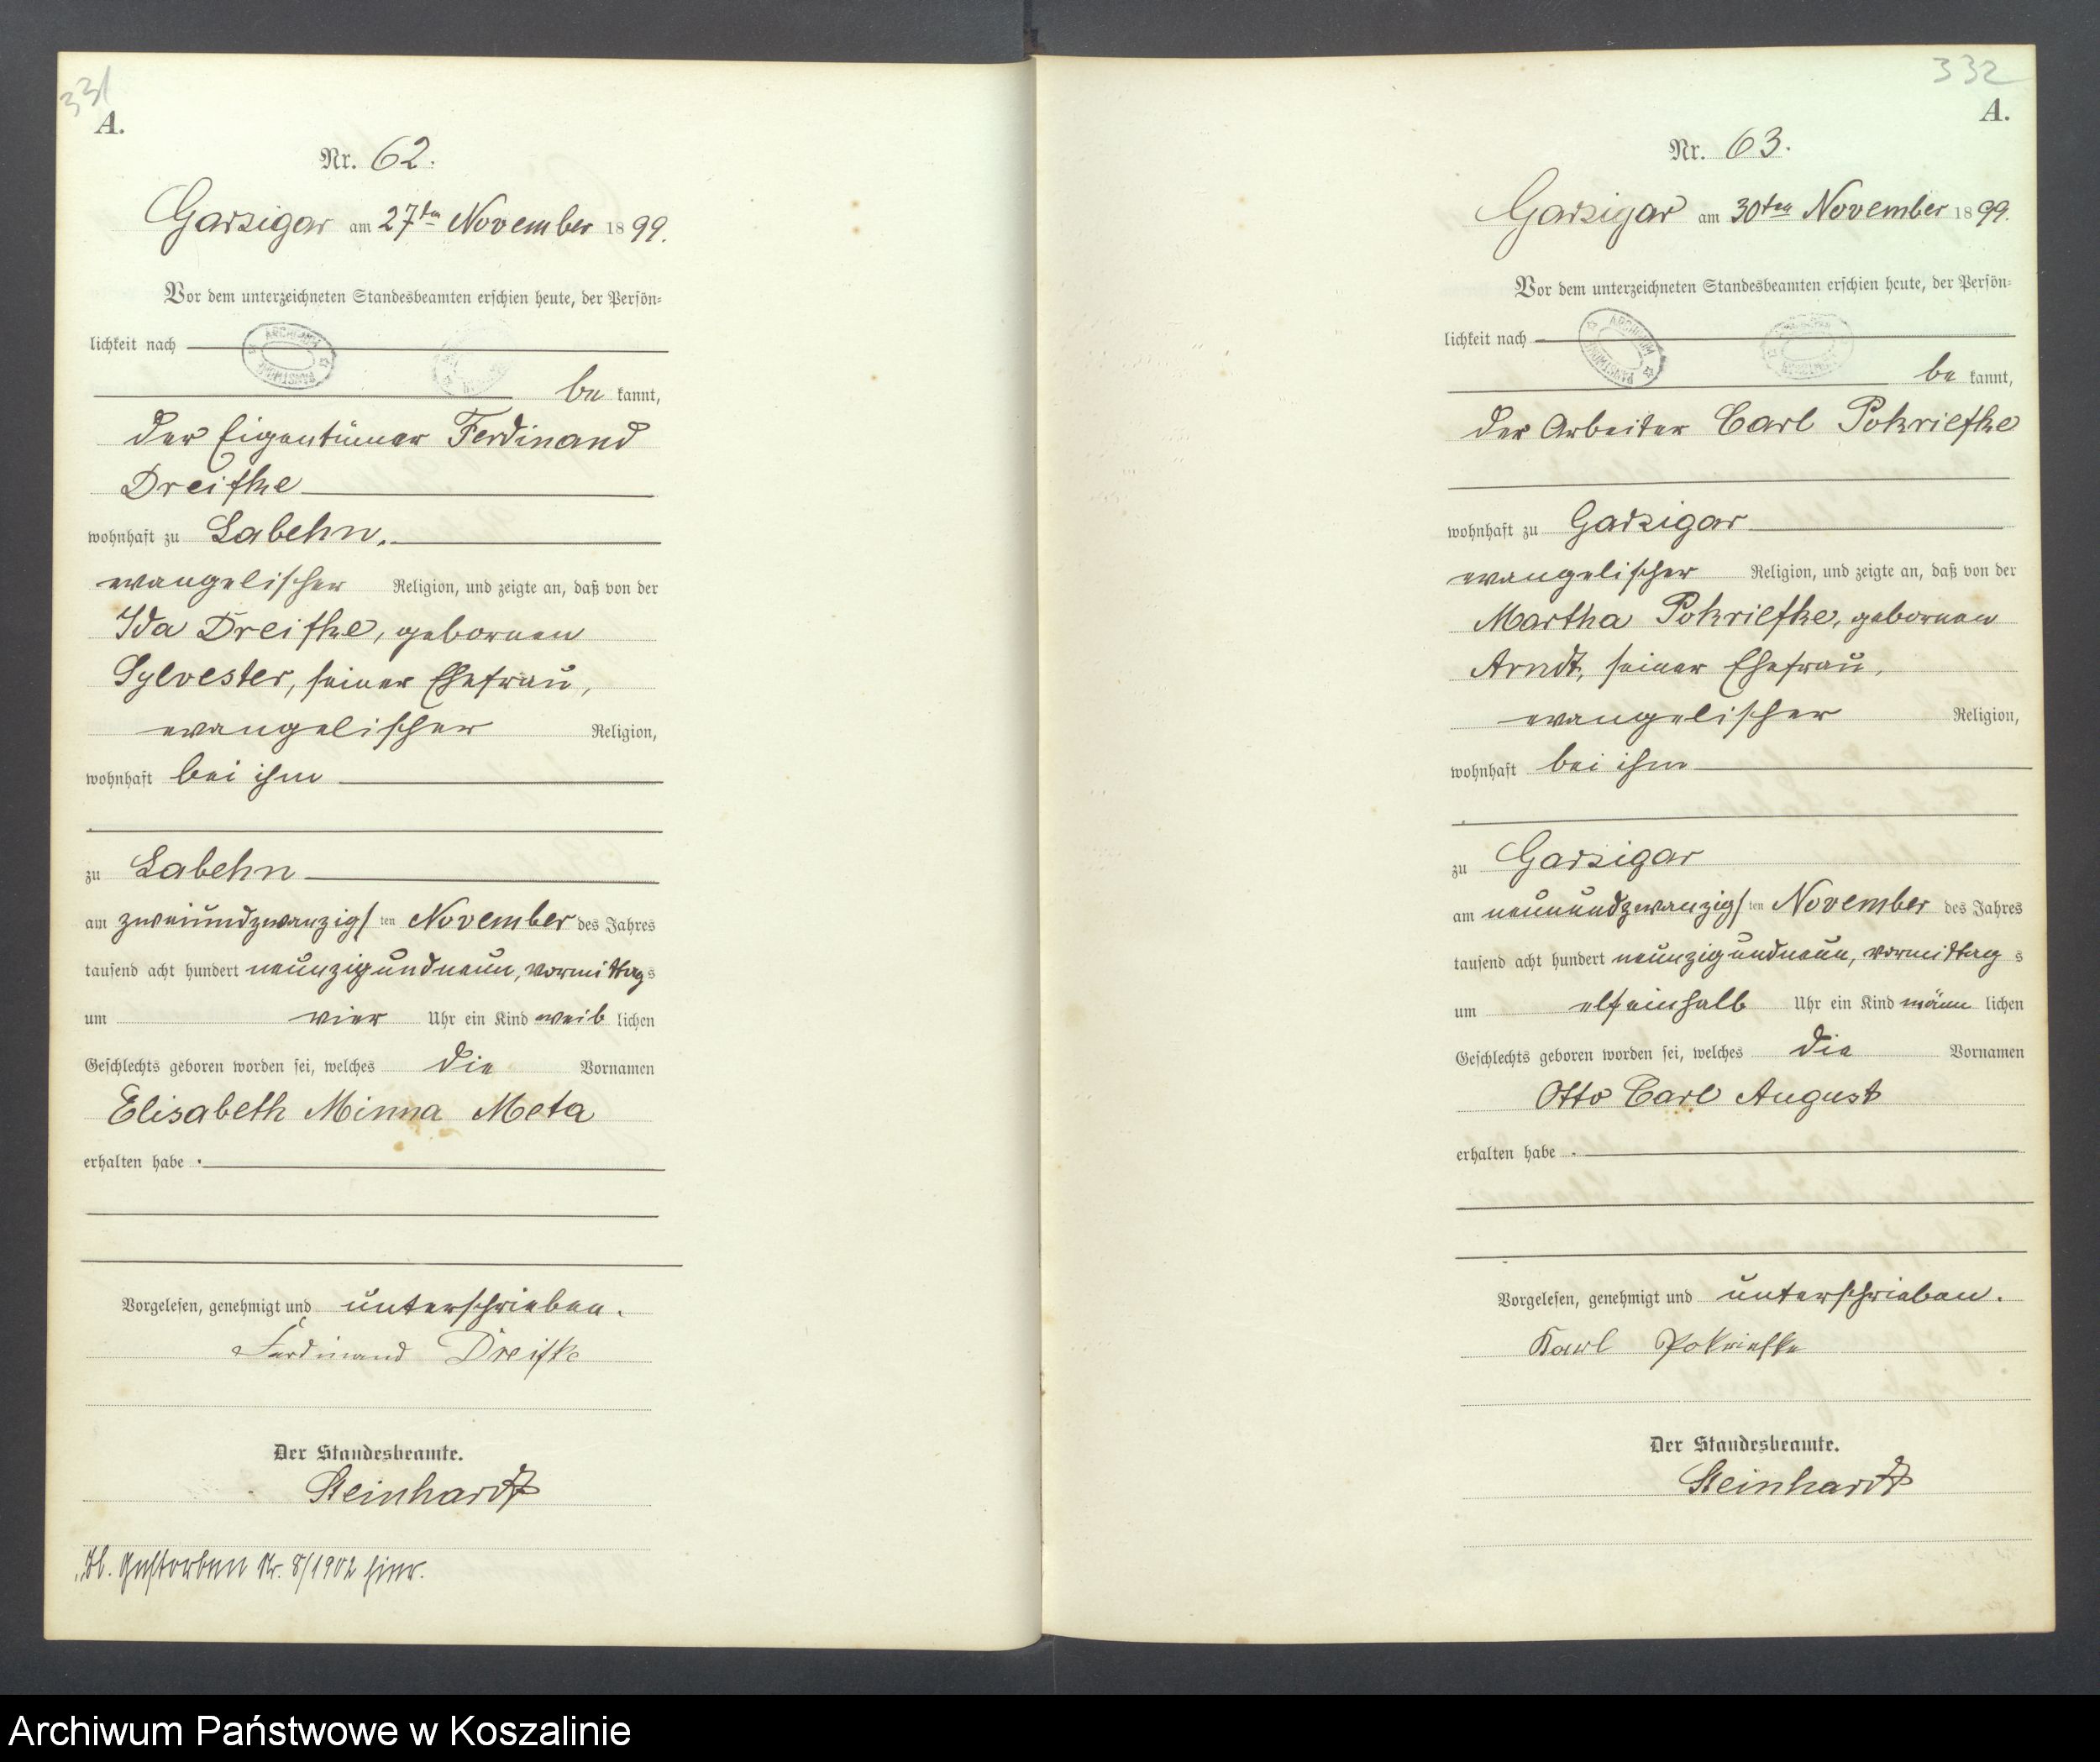 331
A.
Nr. 62.
Garzigar am 27ten November 1899.
Vor dem unterzeichneten Standesbeamten erschien heute, der Persön-
lichkeit nach
ARCHIWUM PAŃSTWOWE
be kannt,
der Eigentümer Ferdinand
Dreifke
wohnhaft zu Labehn,
evangelischer Religion, und zeigte an, daß von der
Ida Dreifke, geborenen
Sylvester, seiner Ehefrau,
evangelischer Religion,
wohnhaft bei ihm
zu Labehn
am zweiundzwanzigsten November des Jahres
tausend acht hundert neunzigundneun, vormittags
um vier Uhr ein Kind weiblichen
Geschlechts geboren worden sei, welches die Vornamen
Elisabeth Minna Meta
erhalten habe.
Vorgelesen, genehmigt und unterschrieben.
Ferdinand Dreifke
Der Standesbeamte.
Steinhardt
Gestorben Nr. 8/1902 hier.
332
A.
Nr. 63.
Garzigar am 30ten November 1899.
Vor dem unterzeichneten Standesbeamten erschien heute, der Persön-
lichkeit nach
ARCHIWUM PAŃSTWOWE
be kannt,
der Arbeiter Carl Pokriefke
wohnhaft zu Garzigar
evangelischer Religion, und zeigte an, daß von der
Martha Pokriefke, geborenen
Arndt, seiner Ehefrau,
evangelischer Religion,
wohnhaft bei ihm
zu Garzigar
am neunundzwanzigsten November des Jahres
tausend acht hundert neunzigundneun, vormittags
um elfeinhalb Uhr ein Kind männlichen
Geschlechts geboren worden sei, welches die Vornamen
Otto Carl August
erhalten habe.
Vorgelesen, genehmigt und unterschrieben.
Karl Pokriefke
Der Standesbeamte.
Steinhardt
Archiwum Państwowe w Koszalinie